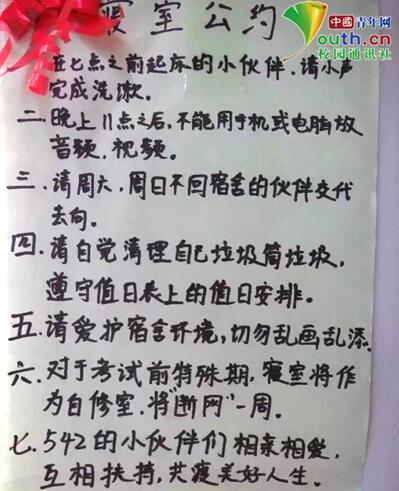 寝室公约
中國青年网
Youth.cn
校园通讯社
在七点之前起床的小伙伴,请小声
完成洗漱。
二.晚上11点之后,不能用手机或电脑放
音频,视频。
三.请周六,周日不回宿舍的伙伴交代
去向。
四.请自觉清理自己垃圾筒垃圾,
遵守值日表上的值日安排。
五.请爱护宿舍环境,切勿乱画乱添.
六.对于考试前特殊期,寝室将作
为自修室,将"断网"一周。
七.542的小伙伴们相亲相爱,
互相扶持,共度美好人生。